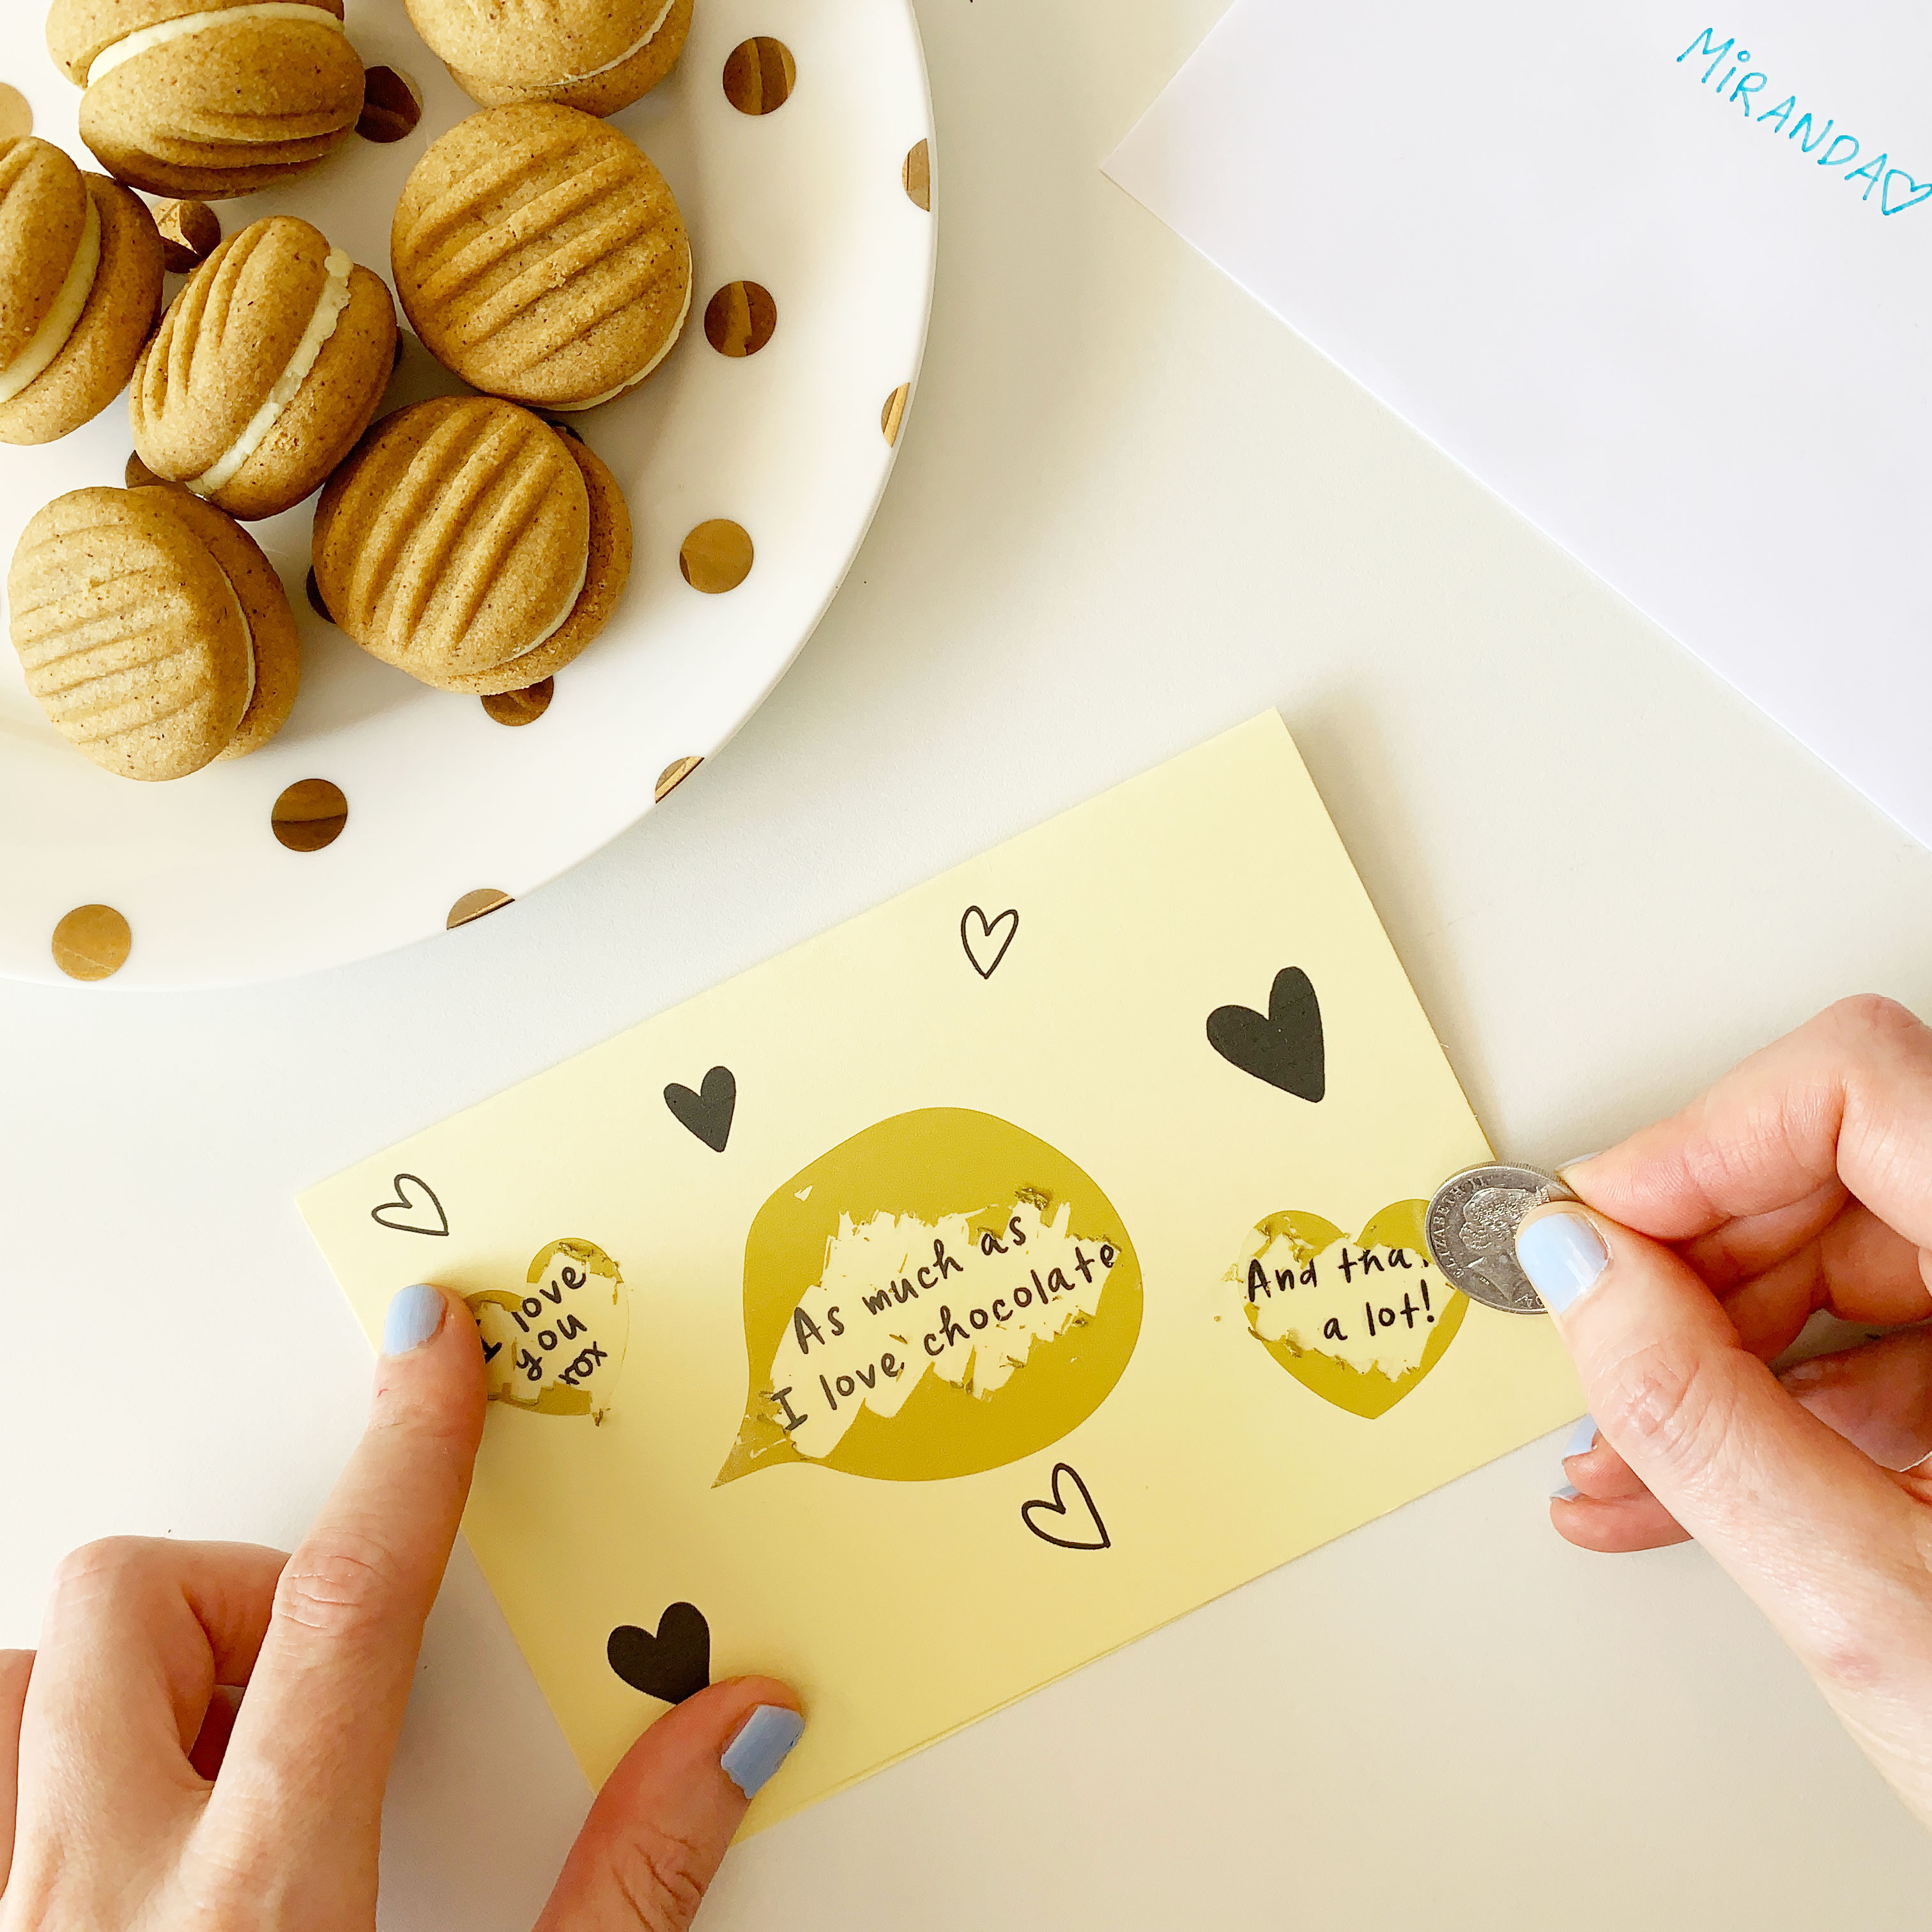 MiRANDA
I love
you
xox
As much as
I love chocolate
And
a lot!
ELIZABETH II